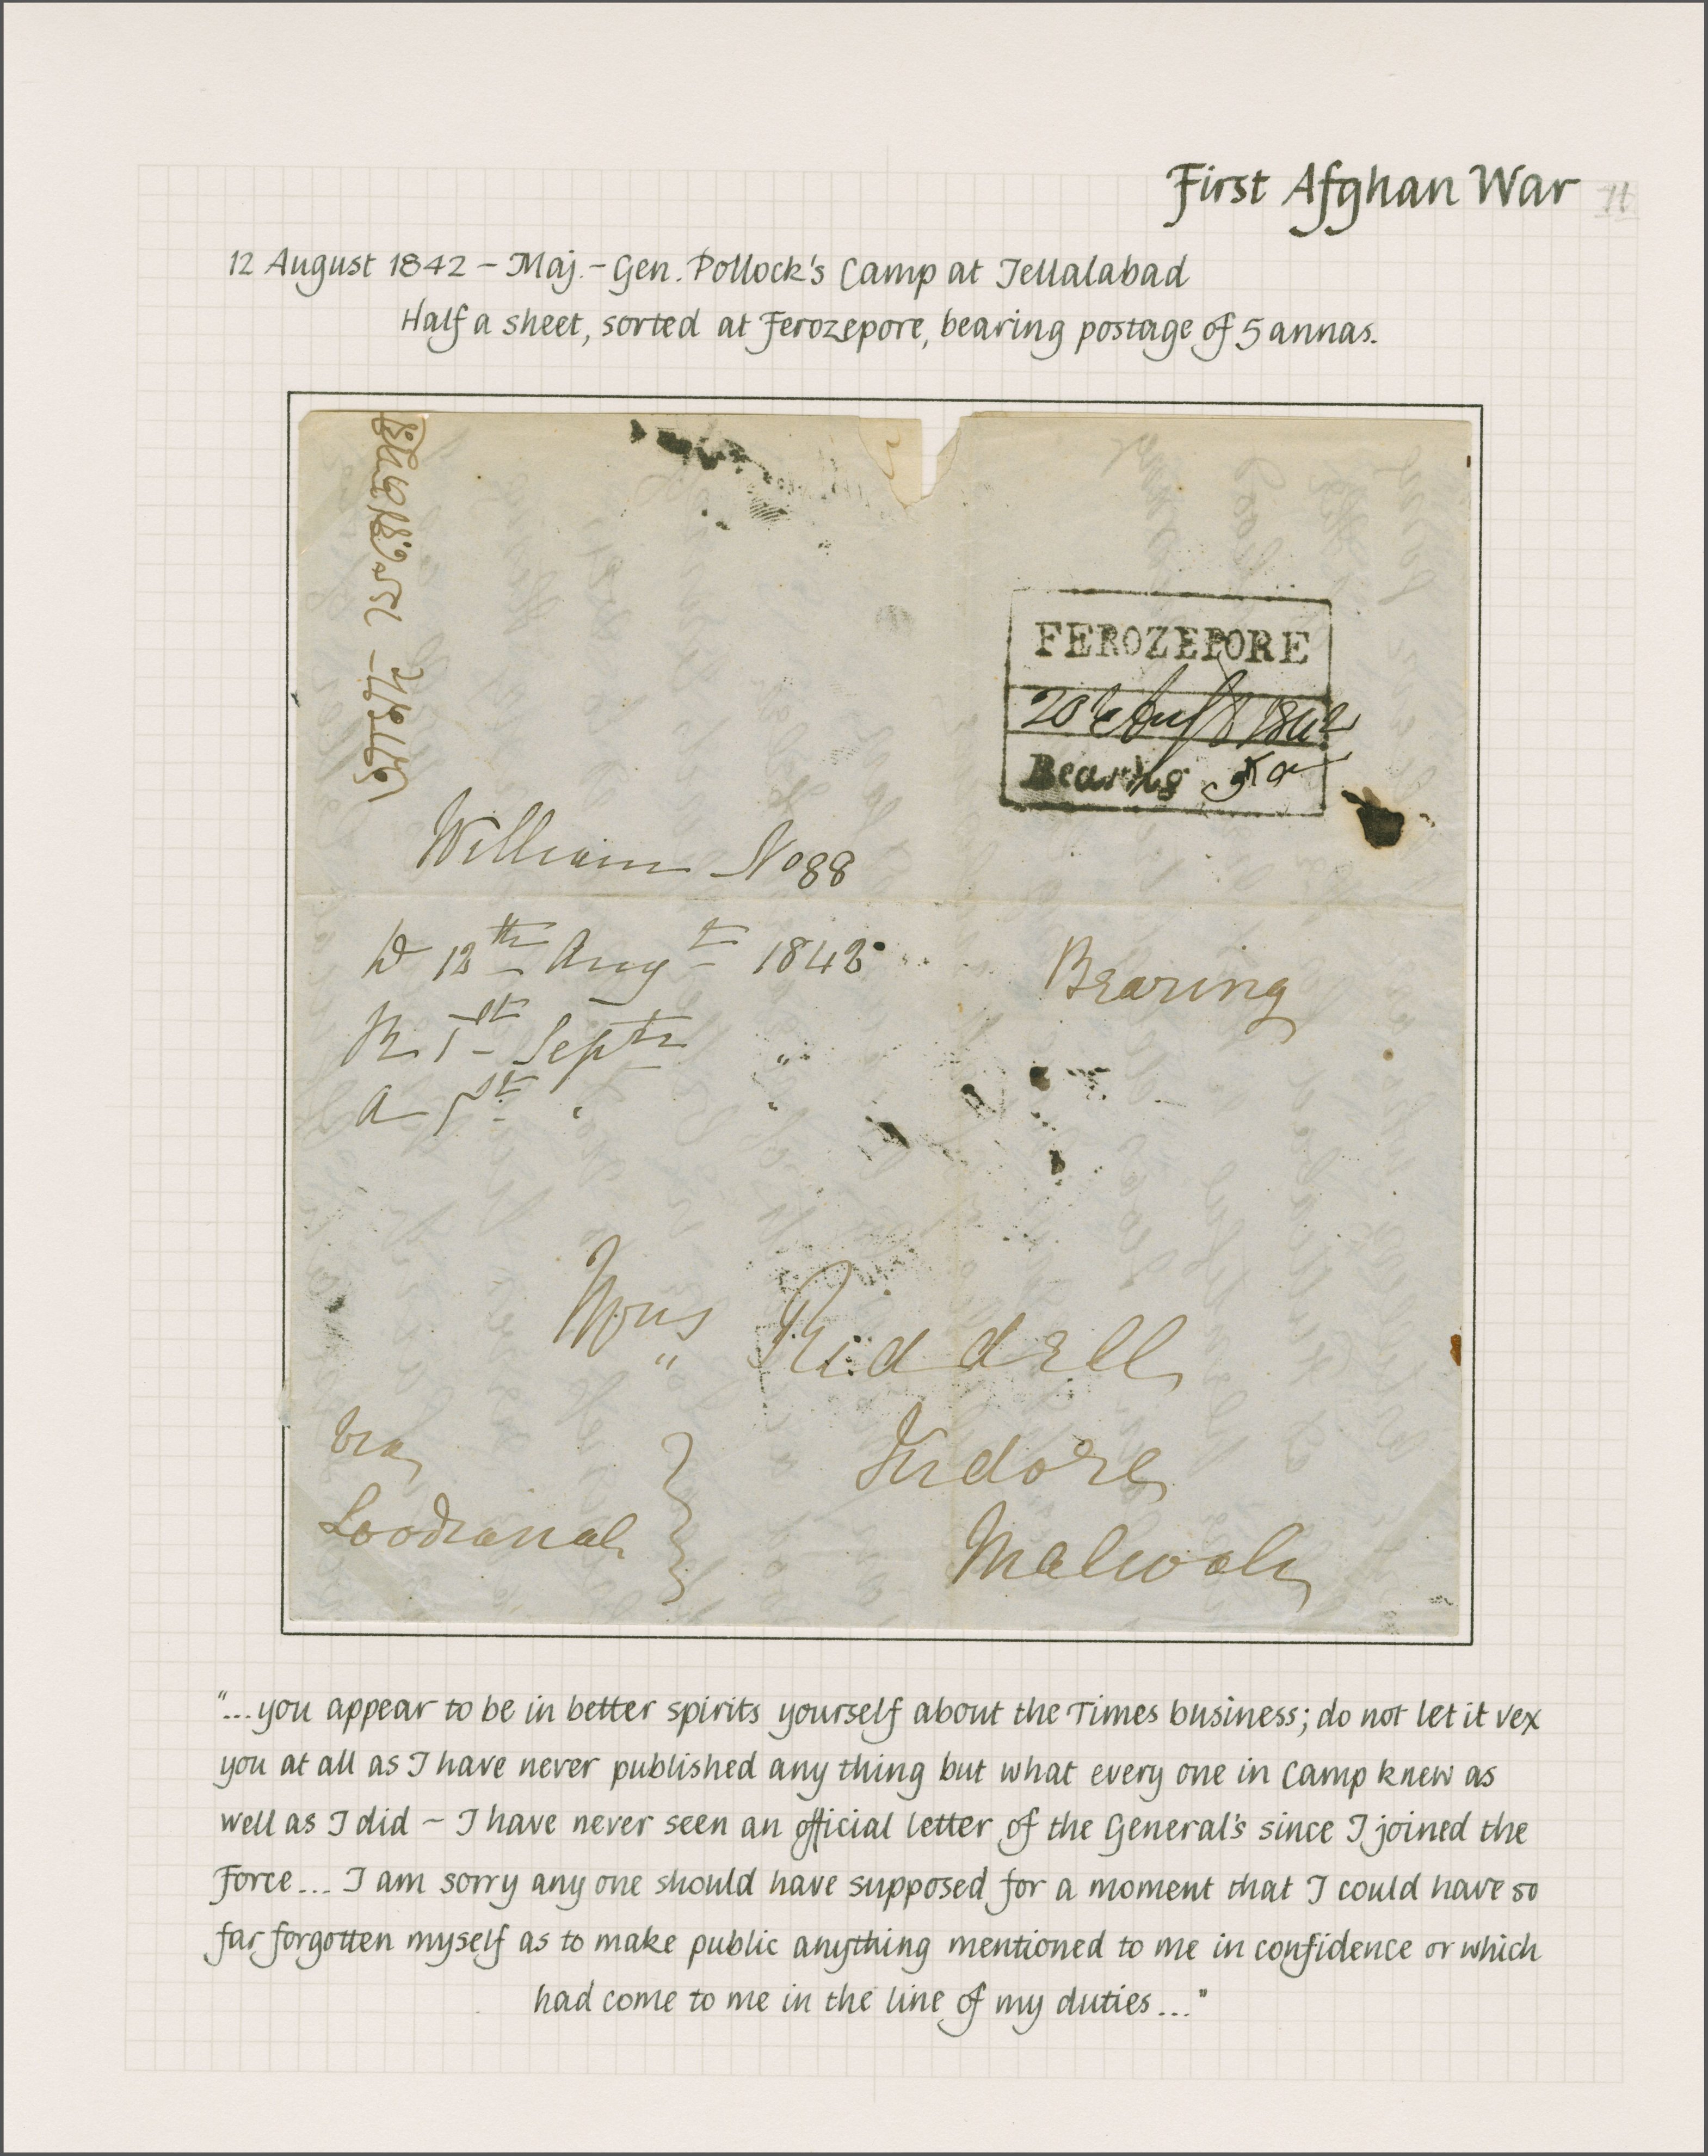 First Afghan War
12 August 1842 – Maj.-Gen. Pollock's Camp at Jellalabad
Half a sheet, sorted at Ferozepore, bearing postage of 5 annas.
FEROZEPORE
20th Augt 1842
Bearing 5 a
William No 88
D 12th Augt 1842
Bearing
R 1st Septr "
A 1st " "
Mrs Riddell
Indore
Malwah
via
Loodianah
"...you appear to be in better spirits yourself about the Times business; do not let it vex
you at all as I have never published any thing but what every one in Camp knew as
well as I did – I have never seen an official letter of the General's since I joined the
Force... I am sorry any one should have supposed for a moment that I could have so
far forgotten myself as to make public anything mentioned to me in confidence or which
had come to me in the line of my duties..."